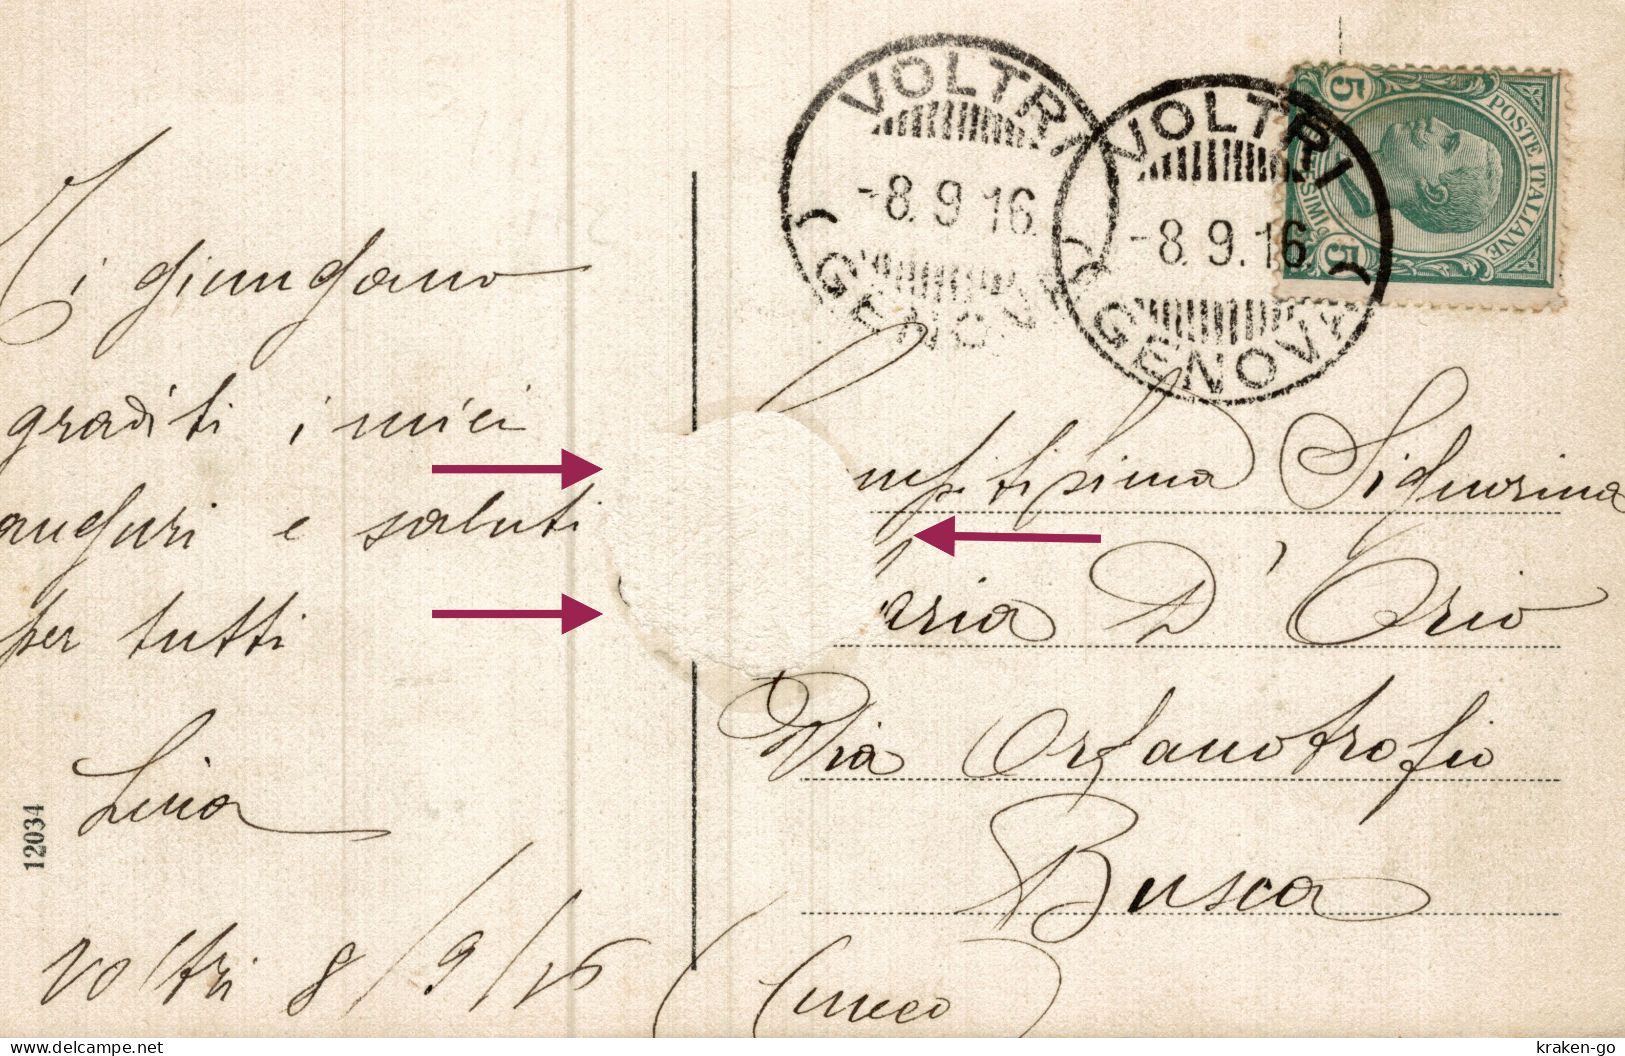 VOLTRI
-8.9.16.
(GENOVA)
VOLTRI
-8.9.16.
(GENOVA)
POSTE ITALIANE
5
5
Vi giungano
graditi i miei
auguri e saluti
per tutti
Lina
Voltri 8/9/16
12034
Signorina
aria D'Orio
Via Orfanotrofio
Busca
(Cuneo)
https://www.delcampe.net
kraken-go